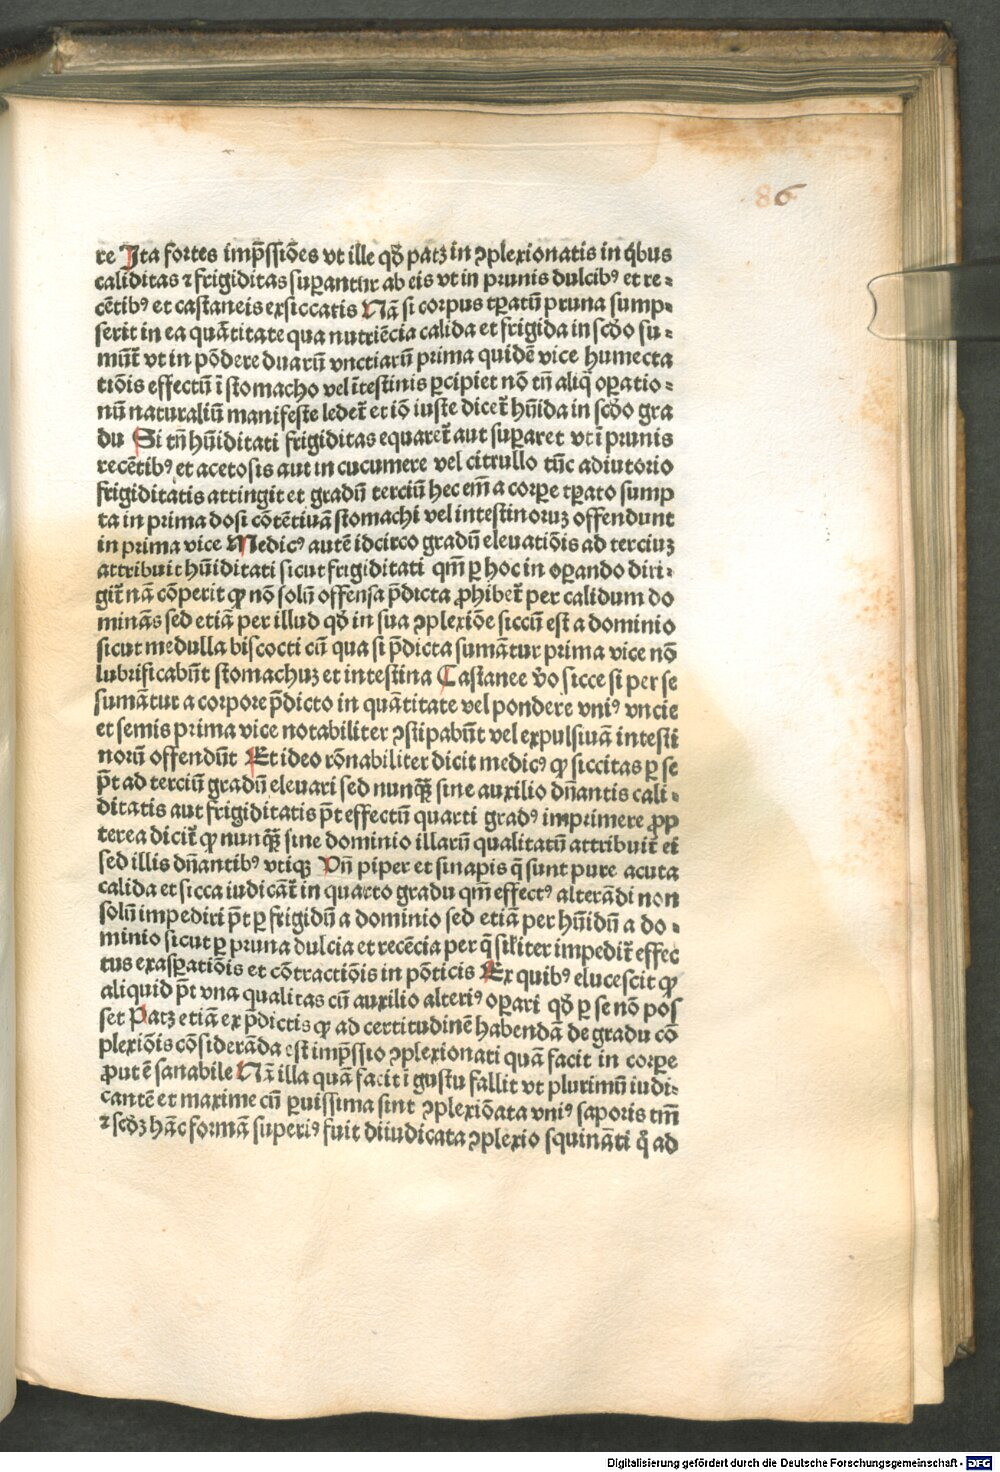 86
re Ita fortes imp̃ssiões vt ille qđ patꝫ in ꝯplexionatis in q̇bus
caliditas ⁊ frigiditas suꝑantur ab eis vt in prunis dulcibꝰ et re⸗
cẽtibꝰ et castaneis exsiccatis Nã si corpus tꝑatũ pruna sump⸗
serit in ea quãtitate qua nutriẽcia calida et frigida in scđo su⸗
mũt᷑ vt in põdere duarũ vnctiarũ prima quidẽ vice humecta
tiõis effectũ ĩ stomacho vel ĩtestinis ꝑcipiet nõ tñ aliq̃ oꝑatio⸗
nũ naturaliũ manifeste ledet᷑ et iõ iuste dicet᷑ hũida in scđo gra
du Si tñ hũiditati frigiditas equaret᷑ aut suꝑaret vt ĩ prunis
recẽtibꝰ et acetosis aut in cucumere vel citrullo tũc adiutorio
frigiditatis attingit et gradũ terciũ hec em̃ a corꝑe tꝑato sump
ta in prima dosi cõtẽtiuã stomachi vel intestinoruꝫ offendunt
in prima vice Medicꝰ autẽ idcirco gradũ eleuatiõis ad terciuꝫ
attribuit hũiditati sicut frigiditati qm̃ ꝑ hoc in oꝑando diri⸗
git᷑ nã cõperit ꝙ nõ solũ offensa p̃dicta ꝓhibet᷑ per calidum do
minãs sed etiã per illud qđ in sua ꝯplexiõe siccũ est a dominio
sicut medulla biscocti cũ qua si p̃dicta sumãtur prima vice nõ
lubrificabũt stomachuꝫ et intestina Castanee v̊o sicce si per se
sumãtur a corpore p̃dicto in quãtitate vel pondere vniꝰ vncie
et semis prima vice notabiliter ꝯstipabũt vel expulsiuã intesti
norũ offendũt Et ideo rõnabiliter dicit medicꝰ ꝙ siccitas ꝑ se
p̃t ad terciũ gradũ eleuari sed nunq̃ꝫ sine auxilio dñantis cali⸗
ditatis aut frigiditatis p̃t effectũ quarti gradꝰ imprimere ꝓp
terea dicit᷑ ꝙ nunq̃ꝫ sine dominio illarũ qualitatũ attribuit᷑ ei
sed illis dñantibꝰ vtiqꝫ Vñ piper et sinapis q̃ sunt pure acuta
calida et sicca iudicãt᷑ in quarto gradu qm̃ effectꝰ alterãdi non
solũ impediri p̃t ꝑ frigidũ a dominio sed etiã per hũidũ a do⸗
minio sicut ꝑ pruna dulcia et recẽcia per q̃ sil̃iter impedit᷑ effec
tus exasꝑatiõis et cõtractiõis in põticis Ex quibꝰ elucescit ꝙ
aliquid p̃t vna qualitas cũ auxilio alteriꝰ oꝑari qđ ꝑ se nõ pos
set Patꝫ etiã ex p̃dictis ꝙ ad certitudinẽ habendã de gradu cõ
plexiõis cõsiderãda est imp̃ssio ꝯplexionati quã facit in corꝑe
ꝓut ẽ sanabile Nã illa quã facit ĩ gustu fallit vt plurimũ iudi⸗
cantẽ et maxime cũ ꝑuissima sint ꝯplexiõata vniꝰ saporis tm̃
⁊ scđꝫ hãc formã superiꝰ fuit diiudicata ꝯplexio squinãti q̇ ad
Digitalisierung gefördert durch die Deutsche Forschungsgemeinschaft - DFG